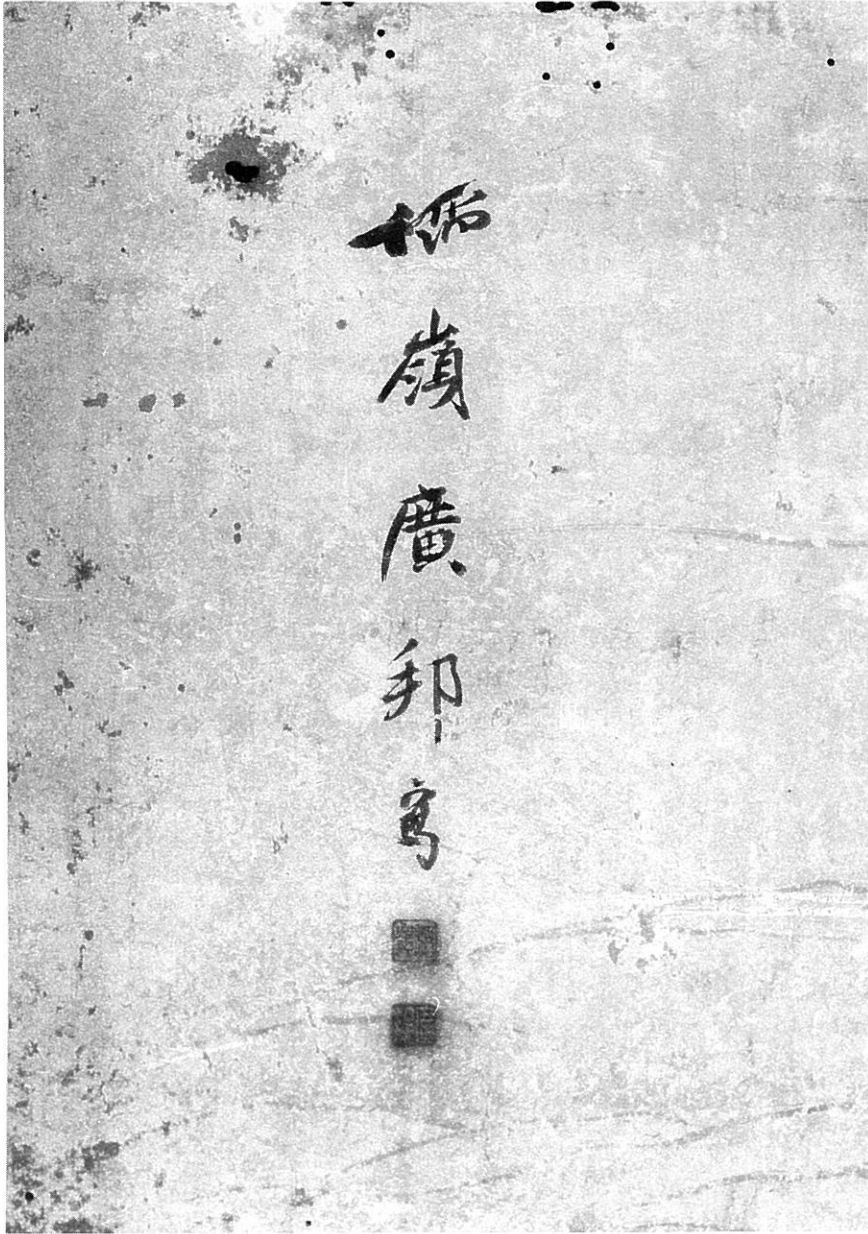 嶺廣邦寫